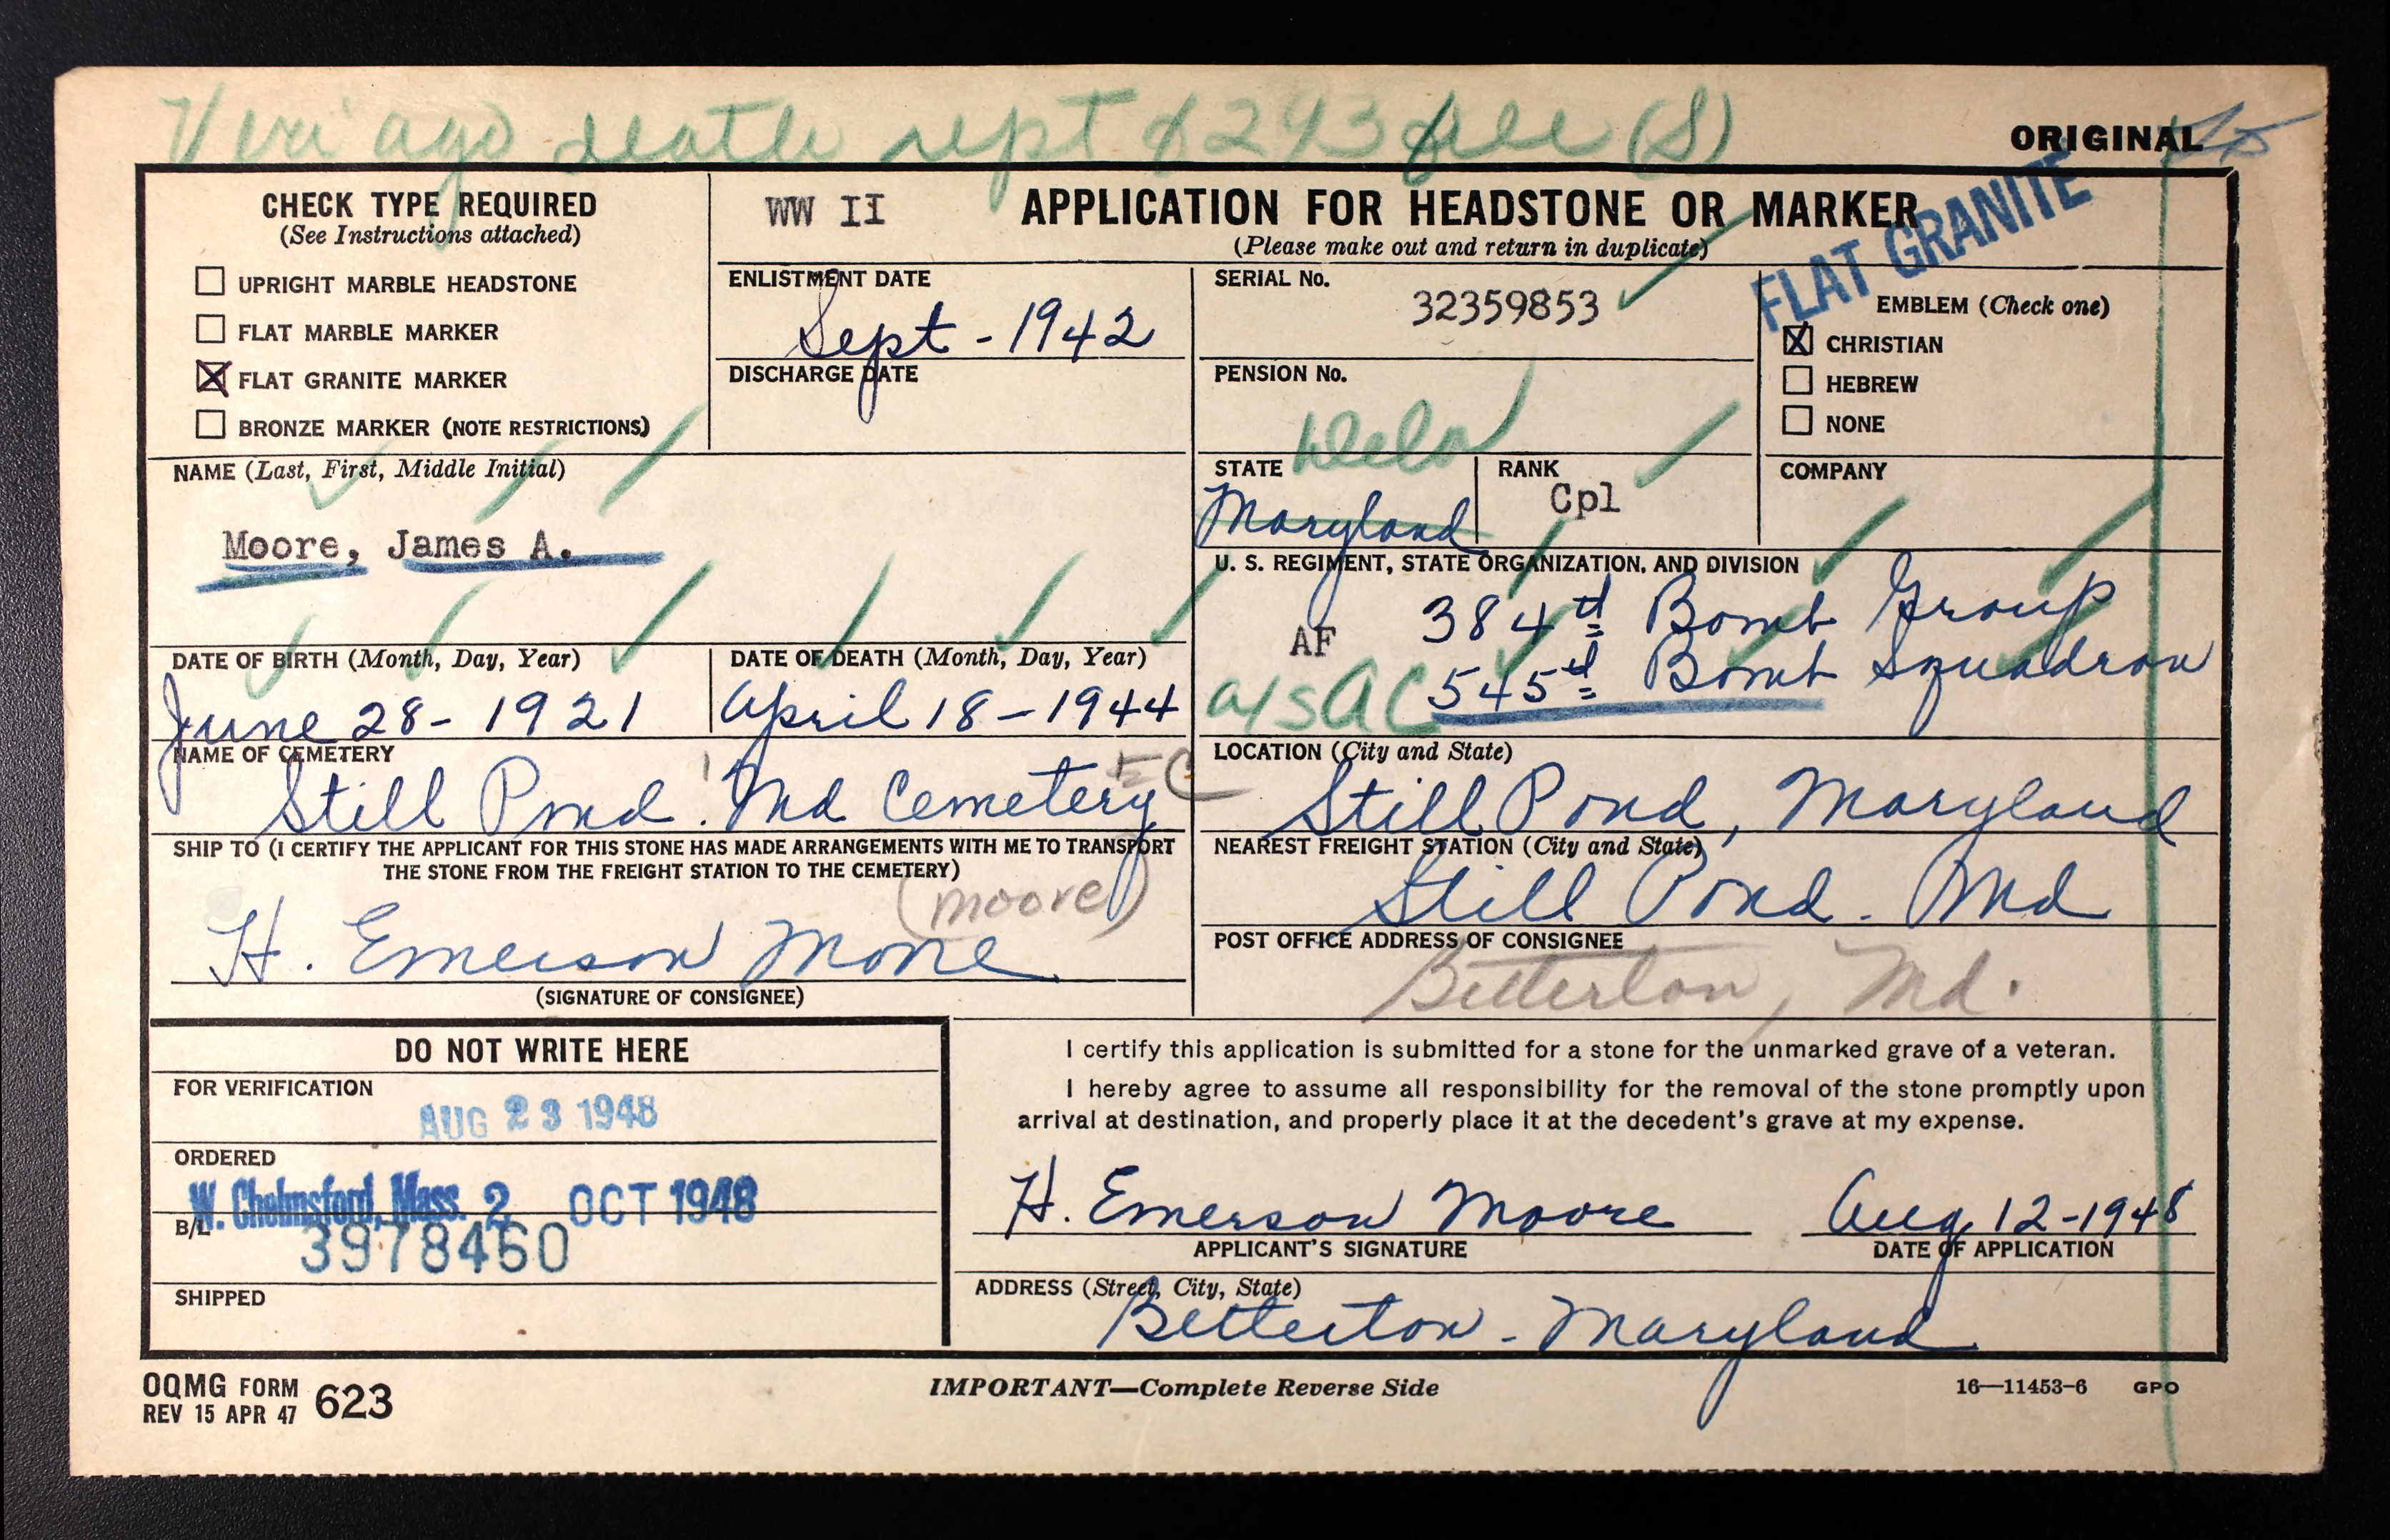 Veri ago death rept & 293 file (S)
ORIGINAL
CHECK TYPE REQUIRED
(See Instructions attached)
UPRIGHT MARBLE HEADSTONE
FLAT MARBLE MARKER
FLAT GRANITE MARKER
BRONZE MARKER (NOTE RESTRICTIONS)
WW II
APPLICATION FOR HEADSTONE OR MARKER
(Please make out and return in duplicate)
FLAT GRANITE
ENLISTMENT DATE
Sept - 1942
DISCHARGE DATE
SERIAL No.
32359853
PENSION No.
EMBLEM (Check one)
CHRISTIAN
HEBREW
NONE
NAME (Last, First, Middle Initial)
Moore, James A.
STATE Delaw
Maryland
RANK
Cpl
COMPANY
U. S. REGIMENT, STATE ORGANIZATION, AND DIVISION
384th Bomb Group
AF
a/s AC 545th Bomb Squadron
DATE OF BIRTH (Month, Day, Year)
June 28 - 1921
DATE OF DEATH (Month, Day, Year)
April 18 - 1944
NAME OF CEMETERY
Still Pond. Md Cemetery
LOCATION (City and State)
Still Pond, Maryland
SHIP TO (I CERTIFY THE APPLICANT FOR THIS STONE HAS MADE ARRANGEMENTS WITH ME TO TRANSPORT
THE STONE FROM THE FREIGHT STATION TO THE CEMETERY)
(moore)
H. Emerson Moore
(SIGNATURE OF CONSIGNEE)
NEAREST FREIGHT STATION (City and State)
Still Pond. Md
POST OFFICE ADDRESS OF CONSIGNEE
Betterton, Md.
DO NOT WRITE HERE
FOR VERIFICATION
AUG 23 1948
ORDERED
W. Chelmsford, Mass. 2 OCT 1948
B/L
3978460
SHIPPED
I certify this application is submitted for a stone for the unmarked grave of a veteran.
I hereby agree to assume all responsibility for the removal of the stone promptly upon
arrival at destination, and properly place it at the decedent's grave at my expense.
H. Emerson Moore
APPLICANT'S SIGNATURE
Aug. 12 - 1948
DATE OF APPLICATION
ADDRESS (Street, City, State)
Betterton - Maryland
OQMG FORM 623
REV 15 APR 47
IMPORTANT—Complete Reverse Side
16—11453-6 GPO